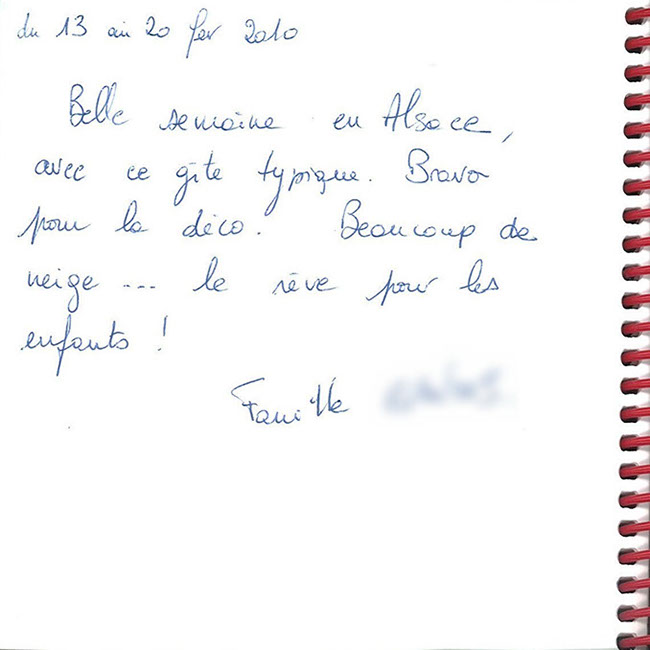 du 13 au 20 fev 2010
Belle semaine en Alsace,
avec ce gîte typique. Bravo
pour la déco. Beaucoup de
neige ... le rêve pour les
enfants !
Famille